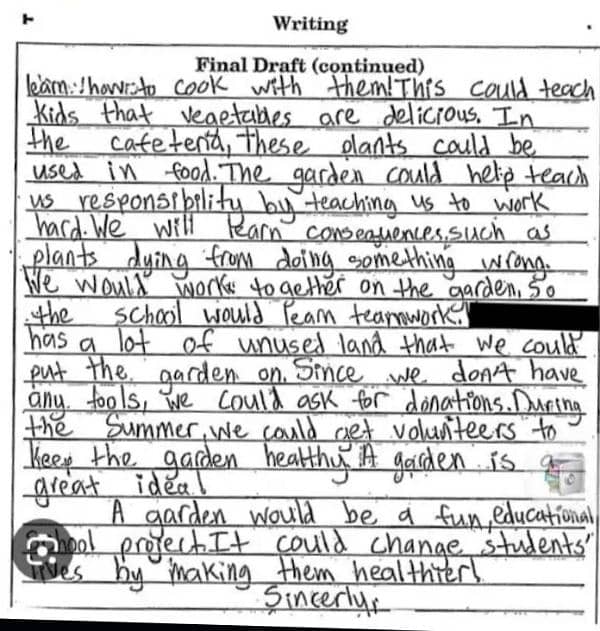 Writing
Final Draft (continued)
learn how to cook with them! This could teach
kids that vegetables are delicious. In
the cafeteria, these plants could be
used in food. The garden could help teach
us responsibility by teaching us to work
hard. We will learn consequences, such as
plants dying from doing something wrong.
We would work together on the garden, so
the school would learn teamwork.
has a lot of unused land that we could
put the garden on. Since we don't have
any tools, we could ask for donations. During
the summer, we could get volunteers to
keep the garden healthy. A garden is a
great idea!
A garden would be a fun, educational
school project. It could change students'
lives by making them healthier!
Sincerely,